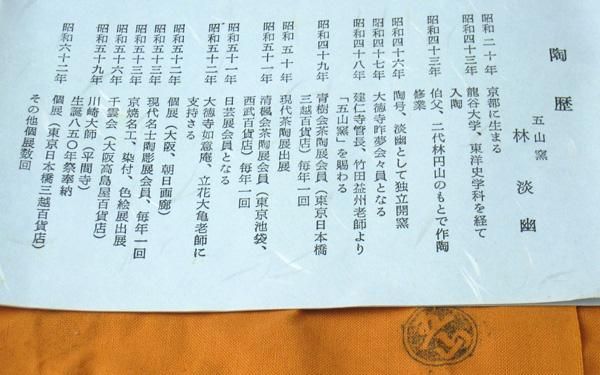 陶歴
五山窯
林淡幽
昭和二十年 京都に生まる
昭和四十三年 龍谷大学、東洋史学科を経て
入陶
昭和四十三年 伯父、二代林円山のもとで作陶
修業
昭和四十六年 陶号、淡幽として独立開窯
昭和四十七年 大徳寺昨夢会々員となる
昭和四十八年 建仁寺管長、竹田益州老師より
「五山窯」を賜わる
昭和四十九年 青樹会茶陶展会員(東京日本橋
三越百貨店)毎年一回
昭和五十年 現代茶陶展出展
昭和五十一年 清楓会茶陶展会員(東京池袋、
西武百貨店)毎年一回
昭和五十一年 日芸展会員となる
昭和五十二年 大徳寺如意庵、立花大亀老師に
支持さる
昭和五十二年 個展(大阪、朝日画廊)
昭和五十三年 現代名士陶彫展会員、毎年一回
昭和五十三年 京焼名工、染付、色絵展出展
昭和五十六年 千雲会(大阪高島屋百貨店)
昭和五十九年 川崎大師(平間寺)
生誕八五〇年祭奉納
昭和六十二年 個展(東京日本橋三越百貨店)
その他個展数回